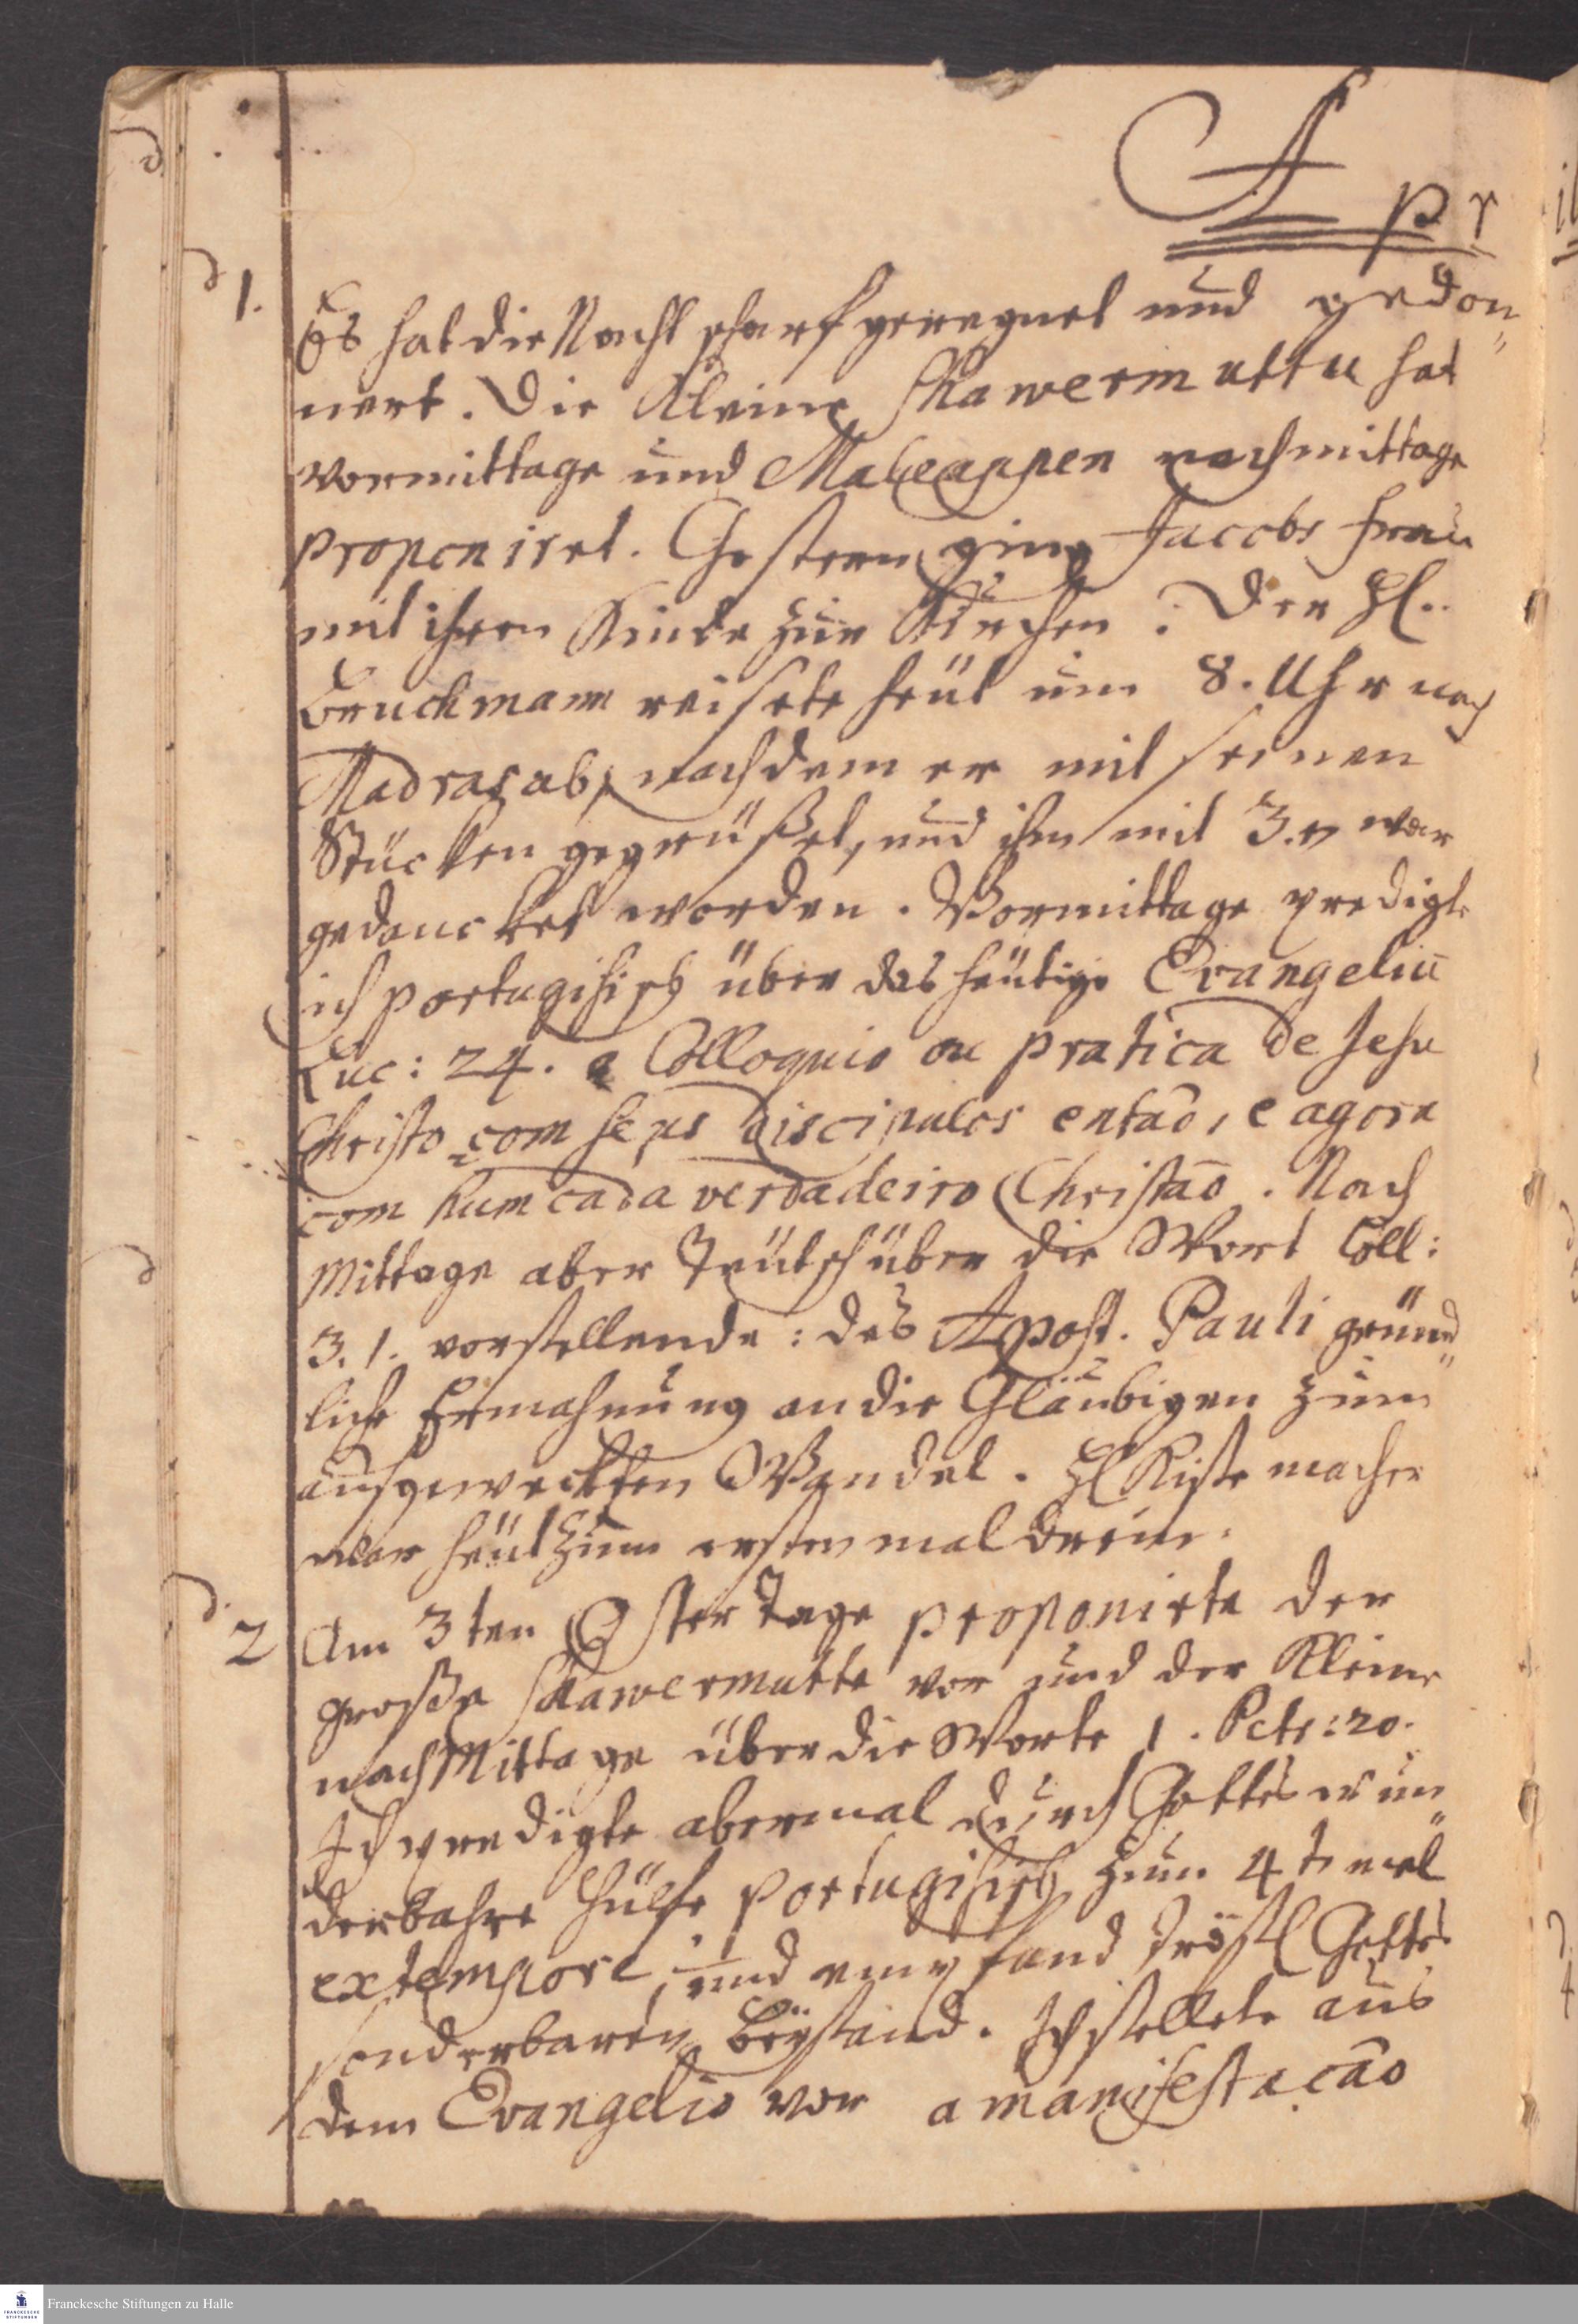 Apr
d 1. Es hat die Nacht scharf geregnet und gedon„
nert. Die Kleine Schawerimuttu hat
vormittage und Maleappen nachmittage
proponiret. Gestern ging Jacobs Frau
mit ihren Kinde zur Kirchen. Der Hl.
Bruckmann reisete heut um 8. Uhr nach
Madras ab, nachdem er mit seinen
Stücken gegrüßet, und ihm mit 3. war
gedancket worden. Vormittage predigte
ich portugisisch über das heutige Evangeliū
Luc: 24. o Colloquio ou pratica de Jesu
Christo com seus discipulos entaō, e agora
com hum cada verdadeiro Christaō. Nach
Mittage aber Teütsch über die Wort Coll:
3. 1. vorstellende: des Apost. Pauli gründ„
liche Ermahnung an die Gläubigen zum
aufgeweckten Wandel. Hl Kistemacher
war heüt zum ersten mal drein.
d. 2 Am 3ten Oster Tage proponirte der
große Schawerimutte vor und der Kleine
nach Mittage über die Worte 1. Petr: 20.
Ich predigte abermal durch Gottes wun„
derbahre Hülfe portugisisch zum 4te mal
extempore, und empfand tröstl Gottes
sonderbaren Beystand. Ich stellete aus
dem Evangelio vor a manifestaçaō
Franckesche Stiftungen zu Halle